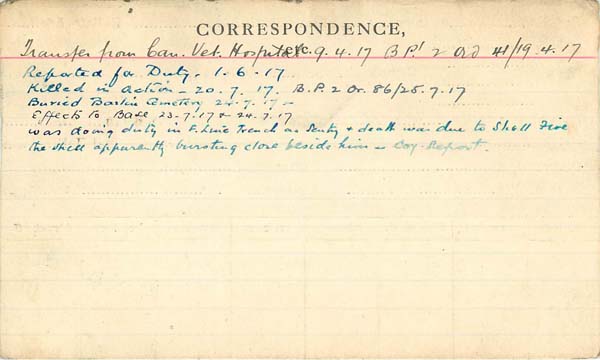 CORRESPONDENCE,
etc.
Transfer from Can. Vet. Hospital 9.4.17 B.P.! 2 Ord 41/19.4.17
Reported for Duty. 1-6-17.
Killed in action - 20.7.17. B.P.2 Or. 86/25.7.17
Buried Barlin Cemetery 22.7.17 -
Effects To Base 23.7.17 & 24.7.17
was doing duty in F. Line Trench as Sentry & death was due to Shell Fire
the shell apparently bursting close beside him - Coy. Report.